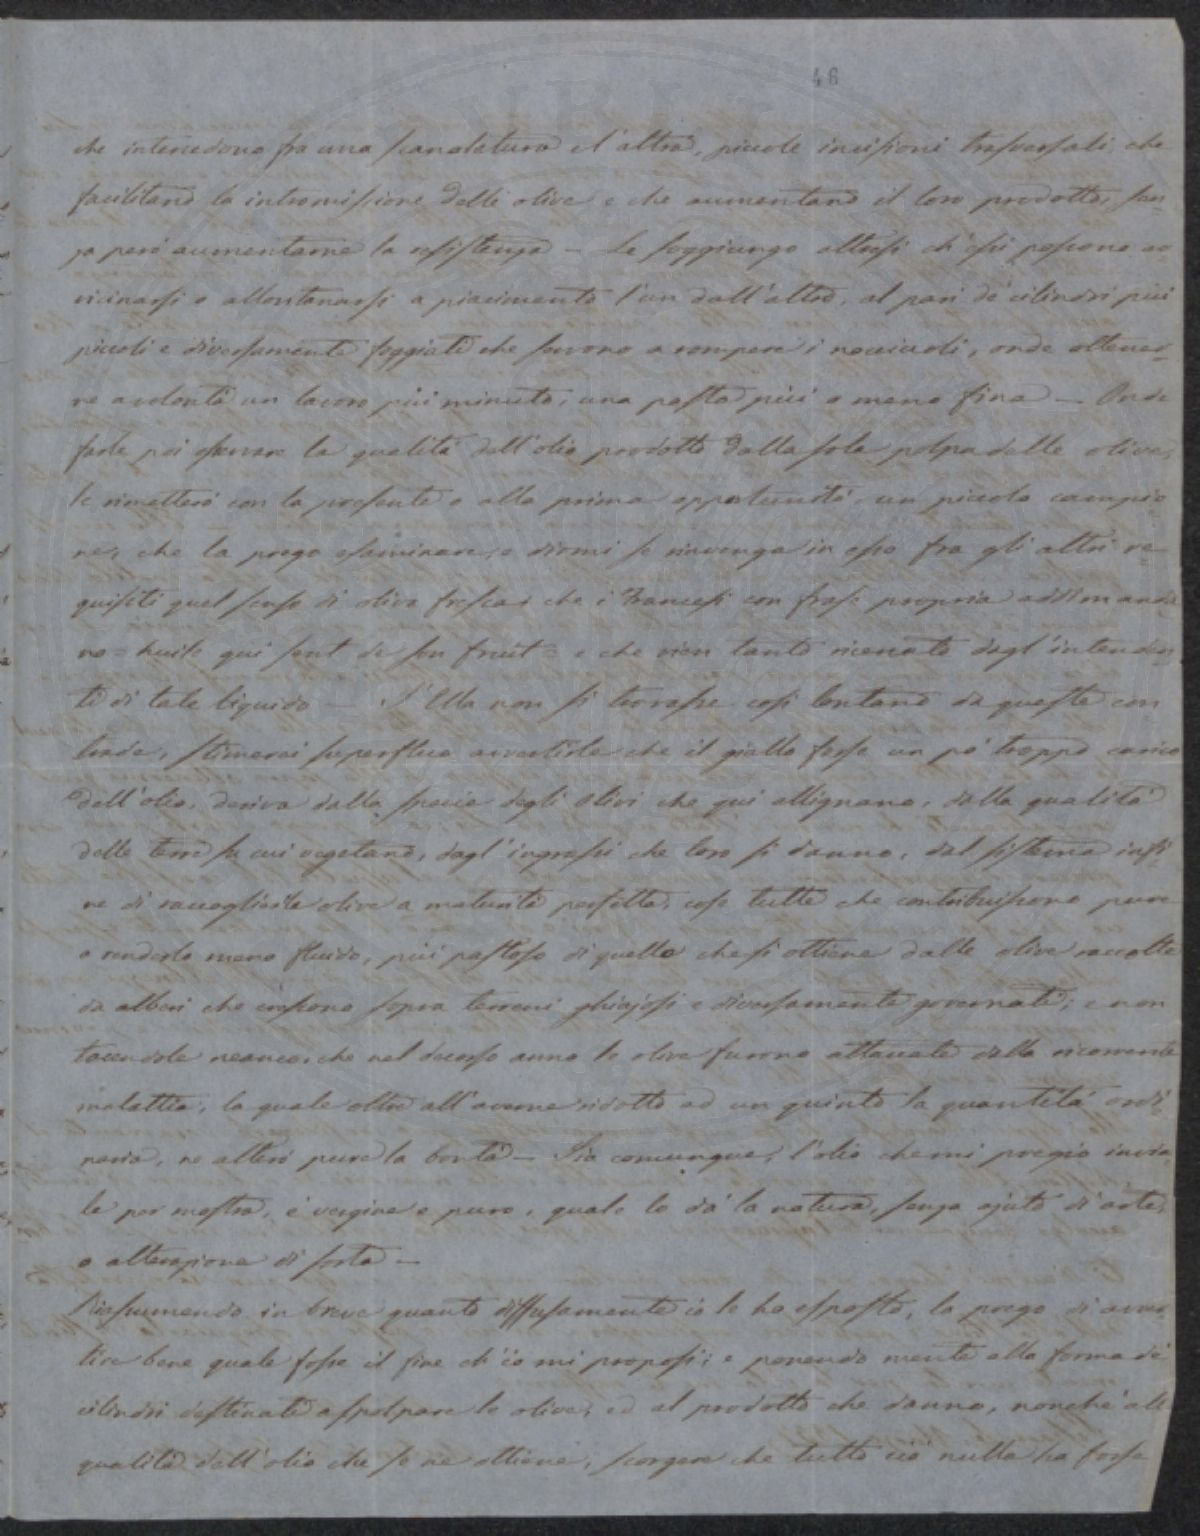 46
che intercedono fra una scanalatura e l'altra, piccole incisioni trasversali, che
facilitano la intromissione delle olive e che aumentano il loro prodotto, sen-
za però aumentarne la resistenza — Le soggiungo altresì ch'essi possono av
vicinarsi o allontanarsi a piacimento l'un dall'altro, al pari de' cilindri più
piccoli e diversamente foggiati che servono a rompere i nocciuoli, onde ottener-
ne a volontà un lavoro più minuto, una pasta più o meno fina — Onde
farle poi osservare la qualità dell'olio prodotto dalla sola polpa delle olive,
le rimetterò con la presente o alla prima opportunità, un piccolo campio
ne, che la prego esaminare, e dirmi se rinvenga in esso fra gli altri re-
quisiti quel senso di oliva fresca che i Francesi con frase propria addimanda
no = huile qui sent de son fruit = e che vien tanto ricercato dagl'intenden-
ti di tale liquido — S'Ella non si trovasse così lontano da queste con
trade, stimerei superfluo avvertirla che il giallo forse un po' troppo carico
dell'olio, deriva dalla specie degli olivi che qui allignano, dalla qualità
delle terre su cui vegetano, dagl'ingrassi che loro si danno, dal sistema infi-
ne di raccogliere le olive a maturità perfetta, cose tutte che contribuiscono pure
a renderlo meno fluido, più pastoso di quello che si ottiene dalle olive raccolte
da alberi che crescono sopra terreni ghiajosi e diversamente governati; e non
tacendole neanco, che nel decorso anno le olive furono attaccate dalla ricorrente
malattia, la quale oltre all'averne ridotto ad un quinto la quantità ordi-
naria, ne alterò pure la bontà — Sia comunque, l'olio che mi pregio inviar
le per mostra, è vergine e puro, quale lo dà la natura, senza ajuto di arte,
o alterazione di sorta —
Riassumendo in breve quanto diffusamente io le ho esposto, la prego di avver
tire bene quale fosse il fine ch'io mi proposi; e ponendo mente alla forma de'
cilindri destinati a spolpare le olive, ed al prodotto che danno, nonché alla
qualità dell'olio che se ne ottiene, scorgere che tutto ciò nulla ha forse